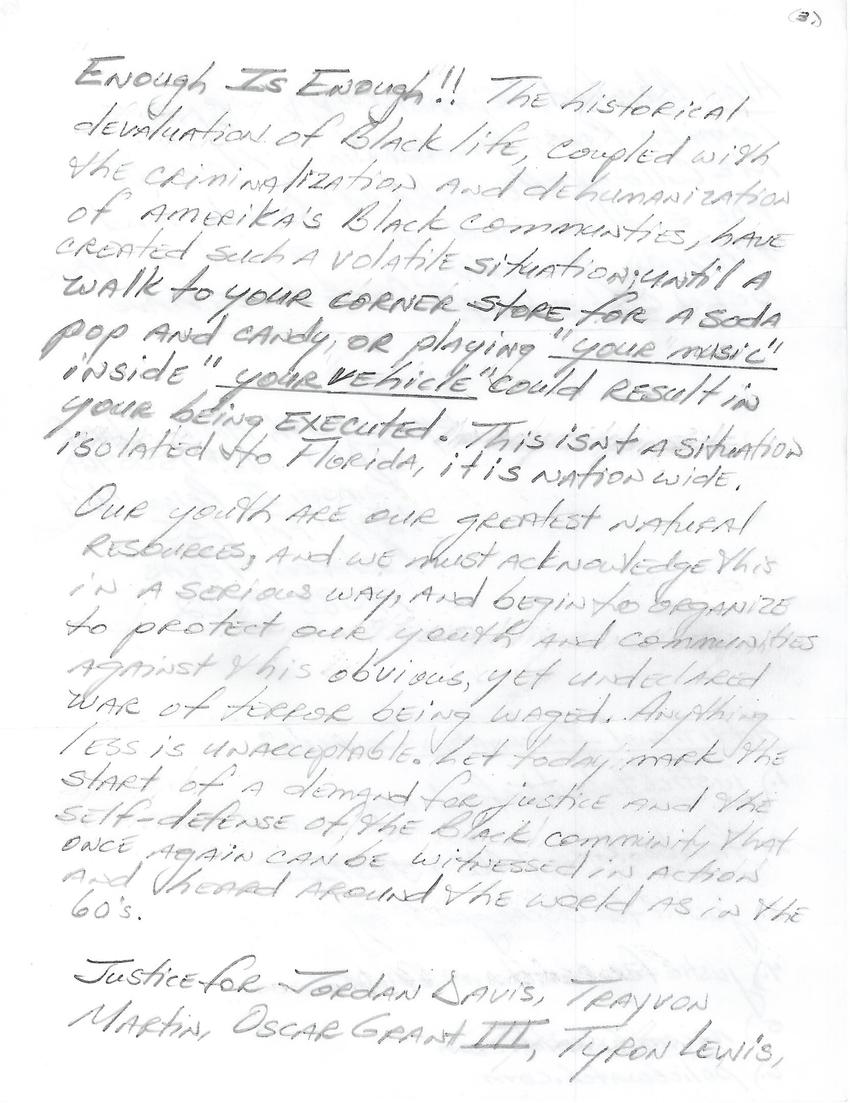 (3.)
Enough Is Enough!! The historical
devaluation of Black life, coupled with
the criminalization and dehumanization
of Amerika's Black communties, have
created such a volatile situation; until a
walk to your corner store for a soda
pop and candy, or playing "your music"
inside "your vehicle" could result in
your being executed. This isnt a situation
isolated to Florida, it is nation wide.
Our youth are our greatest natural
resources, and we must acknowledge this
in a serious way, and begin to organize
to protect our youth and communities
against this obvious, yet undeclared
war of terror being waged. Anything
less is unacceptable. Let today mark the
start of a demand for justice and the
self-defense of the Black community that
once again can be witnessed in action
and heard around the world as in the
60's.
Justice for Jordan Davis, Trayvon
Martin, Oscar Grant III, Tyron Lewis,